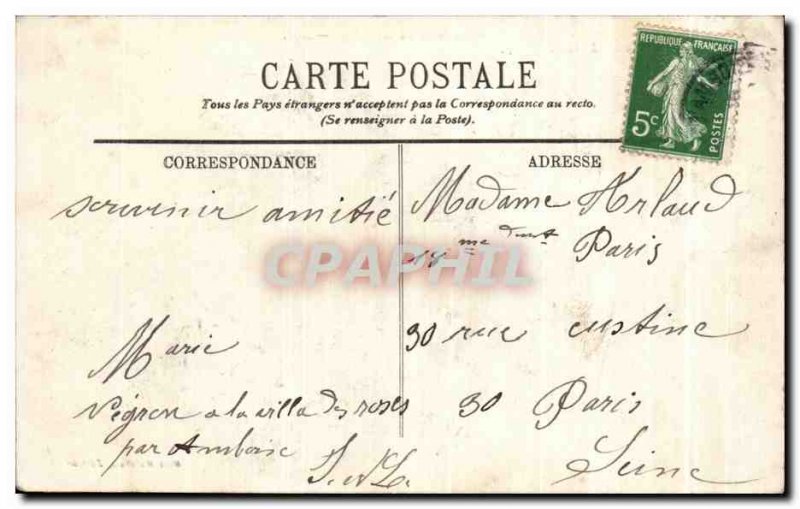 CARTE POSTALE
Tous les Pays étrangers n'acceptent pas la Correspondance au recto.
(Se renseigner à la Poste).
REPUBLIQUE FRANÇAISE
5c
POSTES
CORRESPONDANCE
souvenir amitié
Marie
Négron a la villa des roses
par Amboise
I. et L.
ADRESSE
Madame Arlaud
18 me Paris
30 rue custine
30 Paris
Seine
CPAPHIL